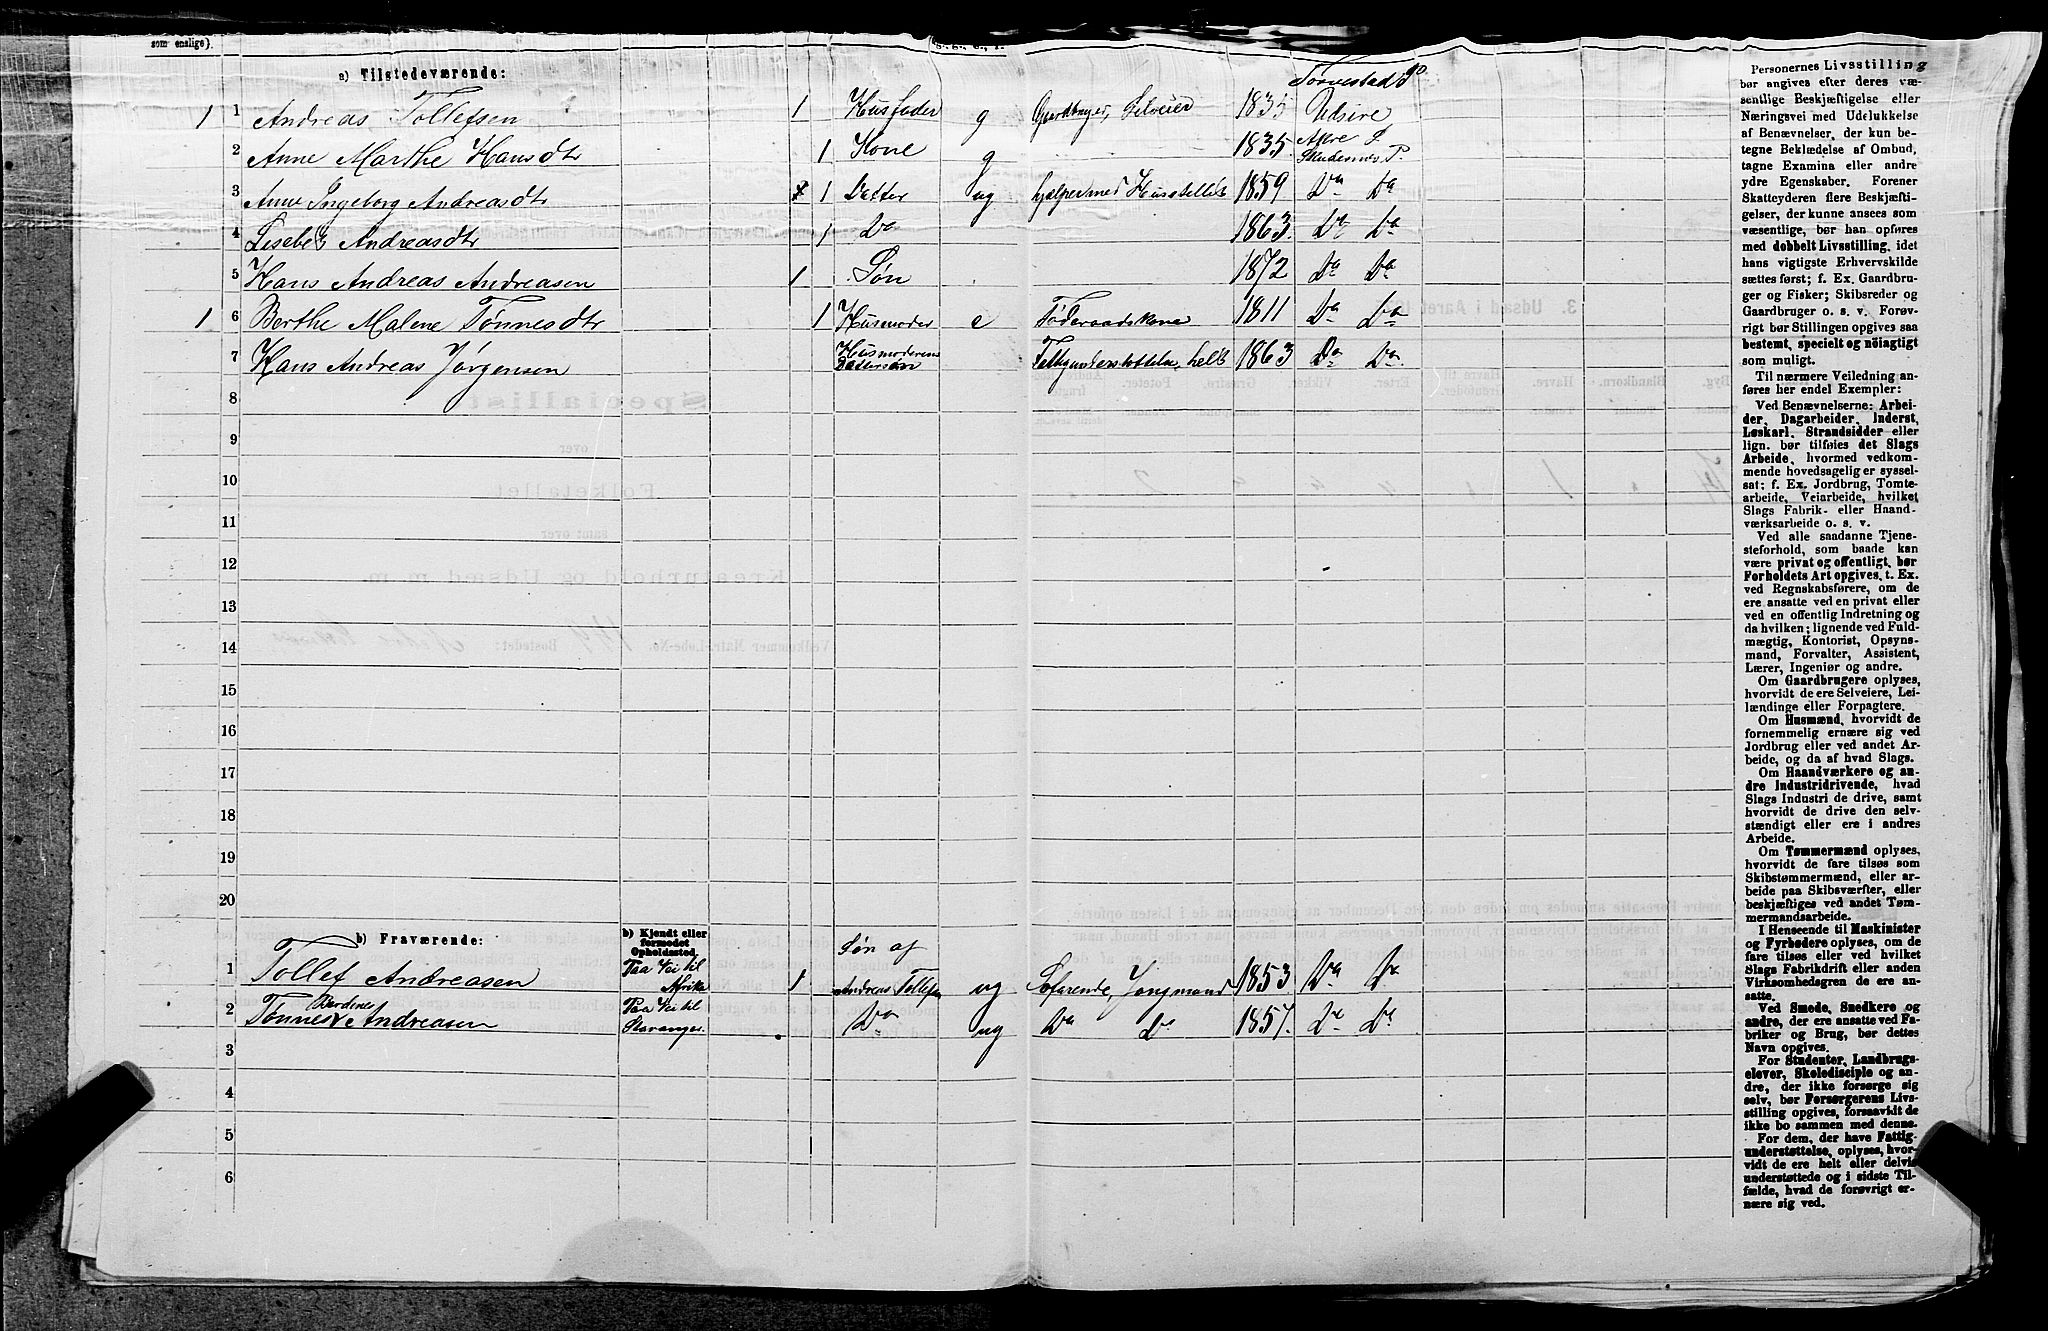 som enslige).
a) Tilstedeværende:
Torvestad P.
1 1 Andreas Tollefsen 1 Husfader g Gaardbruger, Selveier 1835 Udsire
2 Anne Marthe Hansdtr 1 Kone g 1835 Skudenæs P.
3 Anne Ingeborg Andreasdtr 1 Datter ug hjælper med Husstellet 1859 Do Do
4 Andreasdtr 1 Do 1863. Do Do
5 Hans Andreas Andreasen 1 Søn 1872 Do Do
1 6 Berthe Malene Tønnesdtr 1 Husmoder e Føderaadskone 1811 Do Do
7 Hans Andreas Jørgensen Husmoderens Dattersøn helt 1863 Do Do
8
9
10
11
12
13
14
15
16
17
18
19
20
b) Fraværende:
b) Kjendt eller
formodet
Opholdssted.
Søn af
1 Tollef Andreasen Paa Vei til 1 Andreas Tollefsen ug Søfarende, Jungmand 1853 Do Do
2 Tønnes Andreasen Paa Vei til Stavanger Do ug Do Do 1857. Do Do
3
4
5
6
Personernes Livsstilling
bør angives efter deres væ-
sentlige Beskjæftigelse eller
Næringsvei med Udelukkelse
af Benævnelser, der kun be-
tegne Beklædelse af Ombud,
tagne Examina eller andre
ydre Egenskaber. Forener
Skatteyderen flere Beskjæfti-
gelser, der kunne ansees som
væsentlige, bør han opføres
med dobbelt Livsstilling, idet
hans vigtigste Erhvervskilde
sættes først; f. Ex. Gaardbru-
ger og Fisker; Skibsreder og
Gaardbruger o. s. v. Forøv-
rigt bør Stillingen opgives saa
bestemt, specielt og nöiagtigt
som muligt.
Til nærmere Veiledning an-
føres her endel Exempler:
Ved Benævnelserne: Arbei-
der, Dagarbeider, Inderst,
Løskarl, Strandsidder eller
lign. bør tilføies det Slags
Arbeide, hvormed vedkom-
mende hovedsagelig er syssel-
sat; f. Ex. Jordbrug, Tomte-
arbeide, Veiarbeide, hvilket
Slags Fabrik- eller Haand-
værksarbeide o. s. v.
Ved alle saadanne Tjene-
steforhold, som baade kan
være privat og offentligt, bør
Forholdets Art opgives, t. Ex.
ved Regnskabsførere, om de
ere ansatte ved en privat eller
ved en offentlig Indretning og
da hvilken; lignende ved Fuld-
mægtig, Kontorist, Opsyns-
mand, Forvalter, Assistent,
Lærer, Ingeniør og andre.
Om Gaardbrugere oplyses,
hvorvidt de ere Selveiere, Lei-
lændinge eller Forpagtere.
Om Husmænd, hvorvidt de
fornemmelig ernære sig ved
Jordbrug eller ved andet Ar-
beide, og da af hvad Slags.
Om Haandværkere og an-
dre Industridrivende, hvad
Slags Industri de drive, samt
hvorvidt de drive den selv-
stændigt eller ere i andres
Arbeide.
Om Tømmermænd oplyses,
hvorvidt de fare tilsøs som
Skibstømmermænd, eller ar-
beide paa Skibsværfter, eller
beskjæftiges ved andet Tøm-
mermandsarbeide.
I Henseende til Maskinister
og Fyrbødere oplyses, om de
fare tilsøs eller ved hvilket
Slags Fabrikdrift eller anden
Virksomhedsgren de ere an-
satte.
Ved Smede, Snedkere og
andre, der ere ansatte ved Fa-
briker og Brug, bør dettes
Navn opgives.
For Studenter, Landbrugs-
elever, Skoledisciple og an-
dre, der ikke forsørge sig
selv, bør Forsørgerens Livs-
stilling opgives, forsaavidt de
ikke bo sammen med denne.
For dem, der have Fattig-
understøttelse, oplyses, hvor-
vidt de ere helt eller delvis
understøttede og i sidste Til-
fælde, hvad de forøvrigt er-
nære sig ved.